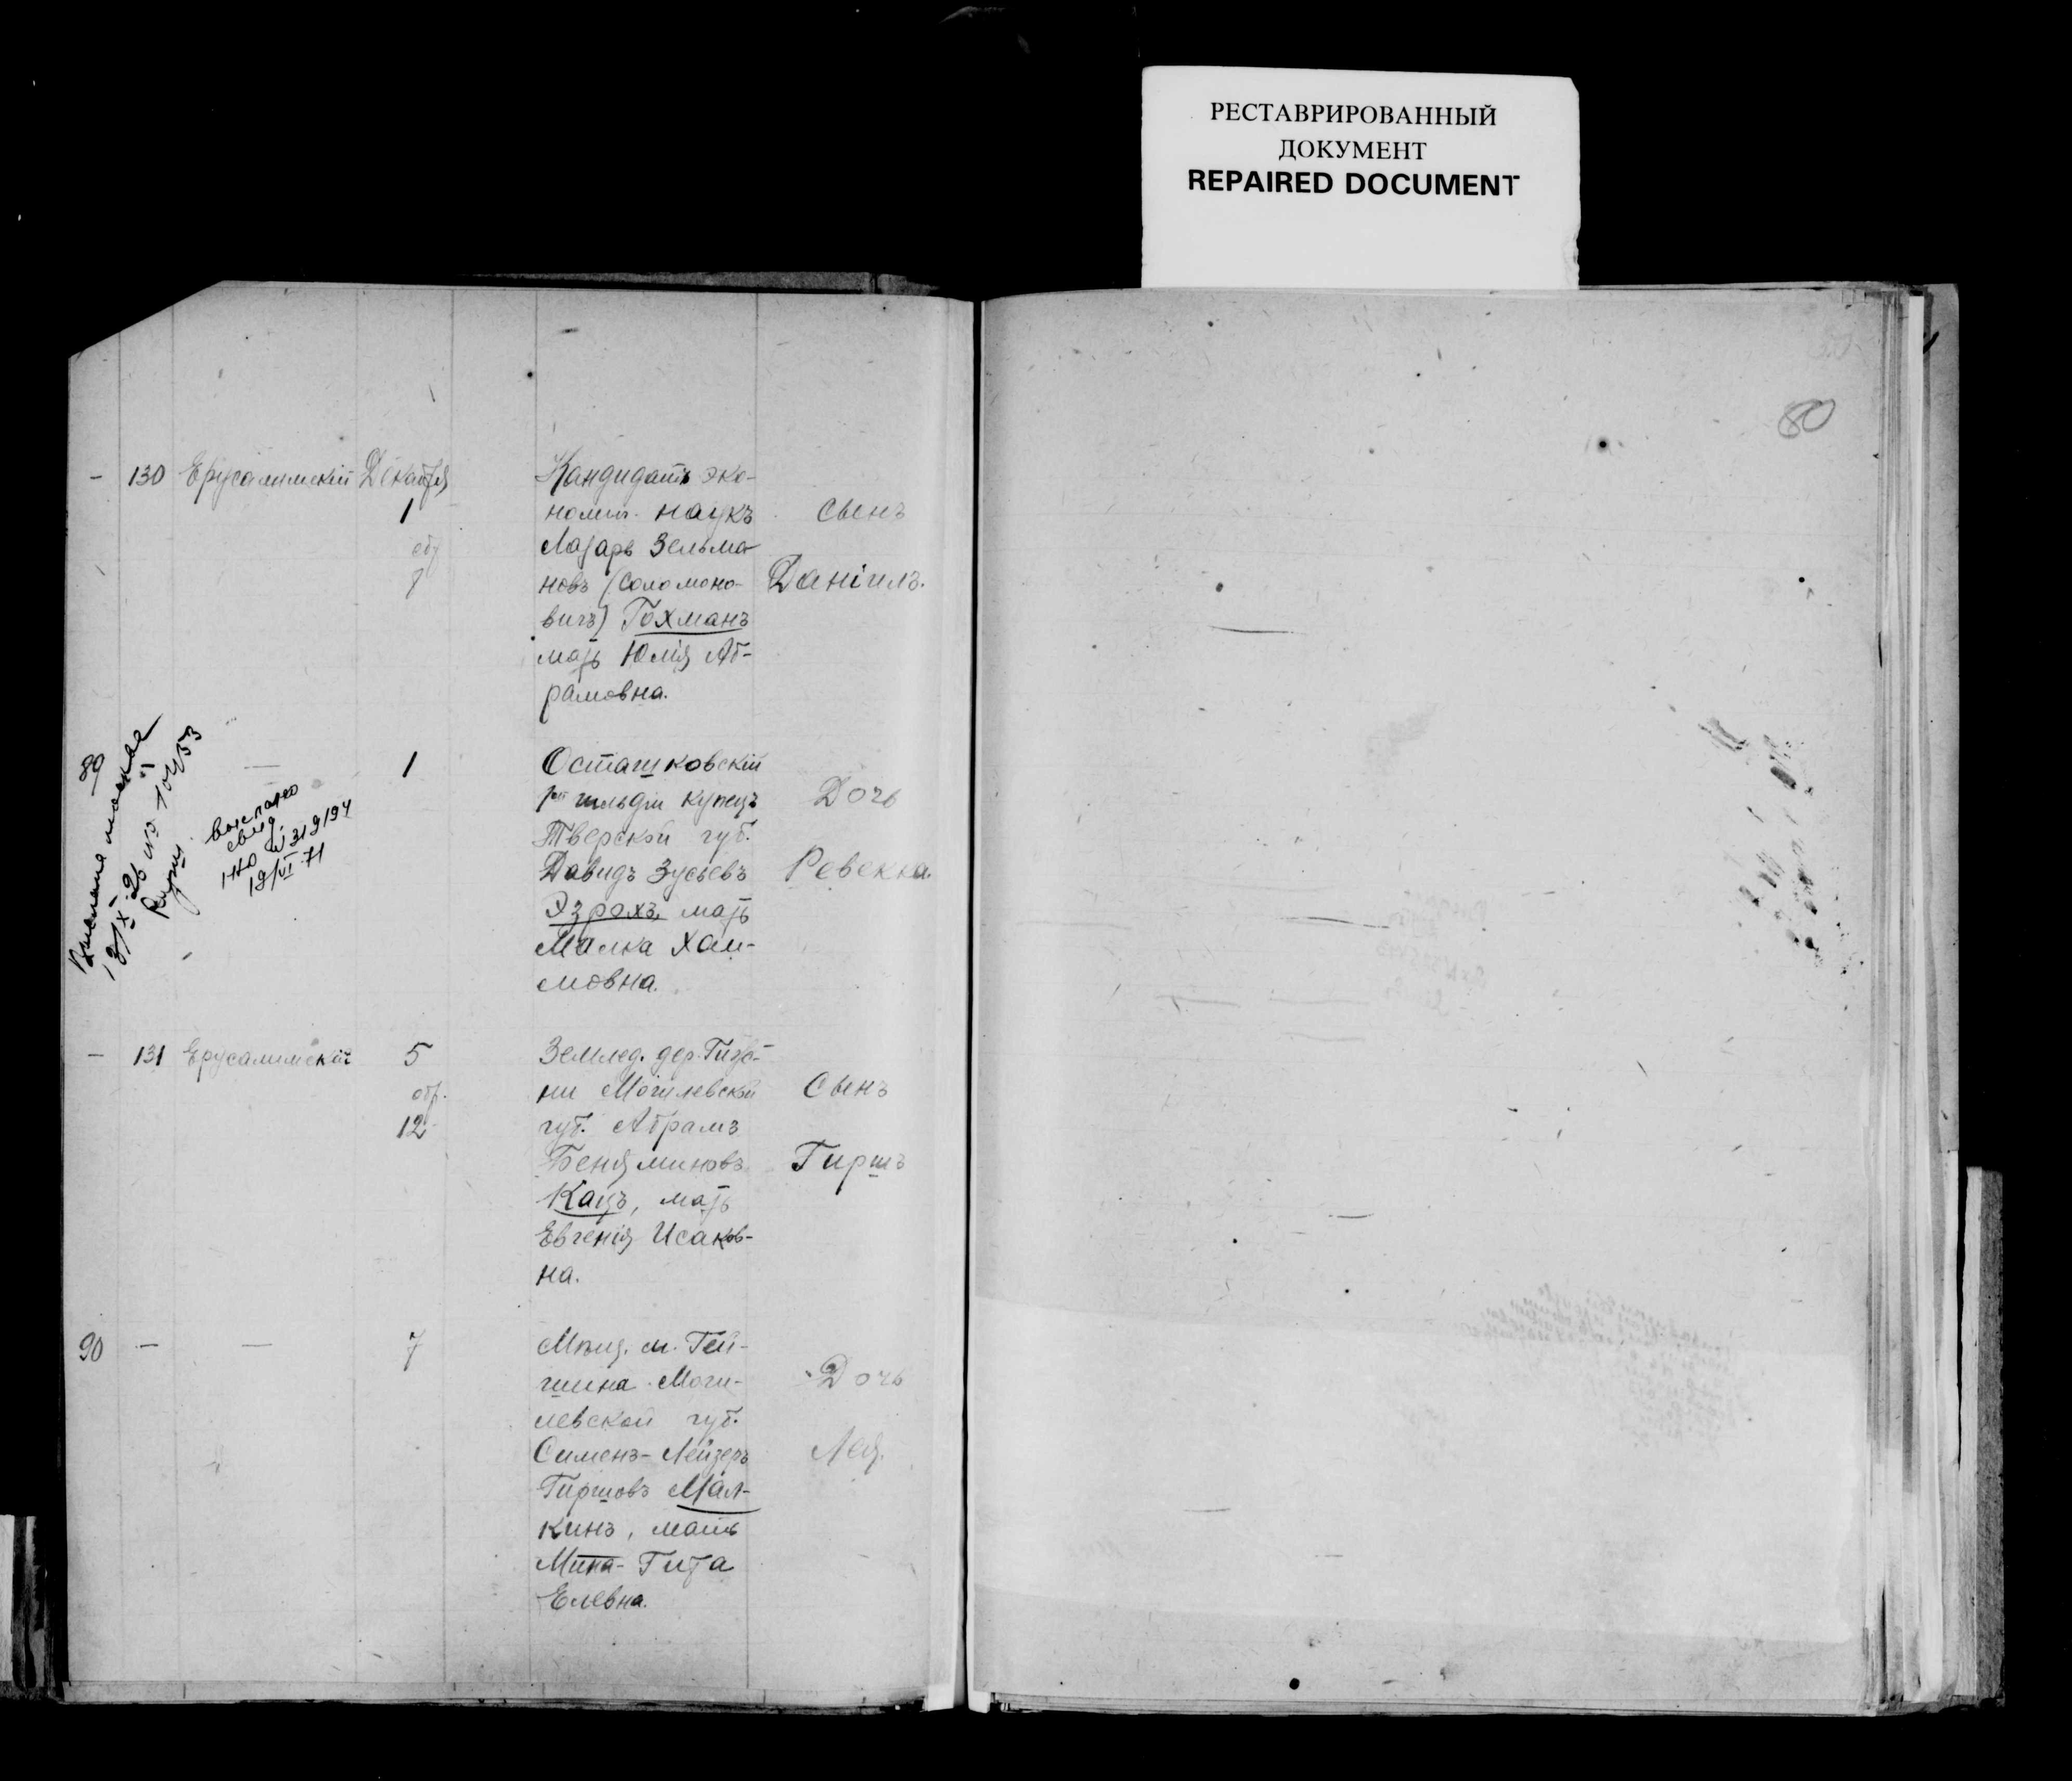 РЕСТАВРИРОВАННЫЙ
ДОКУМЕНТ
REPAIRED DOCUMENT
80
- 130 Ерусалимскій Декабря
1
обр
7
Кандидатъ эко-
ном. наукъ
Лазарь Зельма-
новъ (Соломоно-
вичъ) Гохманъ
мать Юлія Аб-
рамовна.
Сынъ
Даніилъ.
89
— 1
18/X 26 № 10453
выслано
свид.
18/VI 71
Осташковскій
гильдіи купецъ
Тверской губ.
Давидъ Зусьевъ
Эзрохъ, мать
Малка Хаи-
мовна.
Дочь
Ревекка.
- 131 Ерусалимскій 5
обр.
12
Землед. дер.
ни Могилевской
губ. Абрамъ
Беняминовъ
Кацъ, мать
Евгенія Исаков-
на.
Сынъ
Гиршъ
90 — — 7
Мѣщ. м. Гей-
шина Моги-
левской губ.
Сименъ-Лейзеръ
Гиршовъ Мал-
кинъ, мать
Мина-Гита
Елевна.
Дочь
Лея.